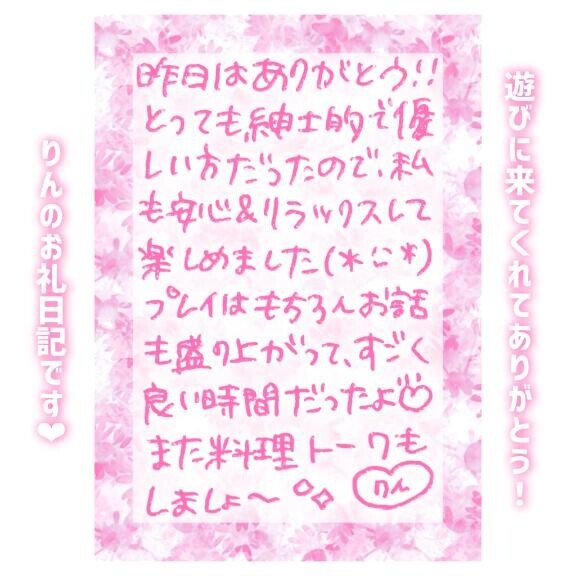 遊びに来てくれてありがとう！
昨日はありがとう!!
とっても紳士的で優
しい方だったので、私
も安心&リラックスして
楽しめました(*ﾆ*)
プレイはもちろんお話
も盛り上がって、すごく
良い時間だったよ♡
また料理トークも
しましょ〜
りん
りんのお礼日記です❤